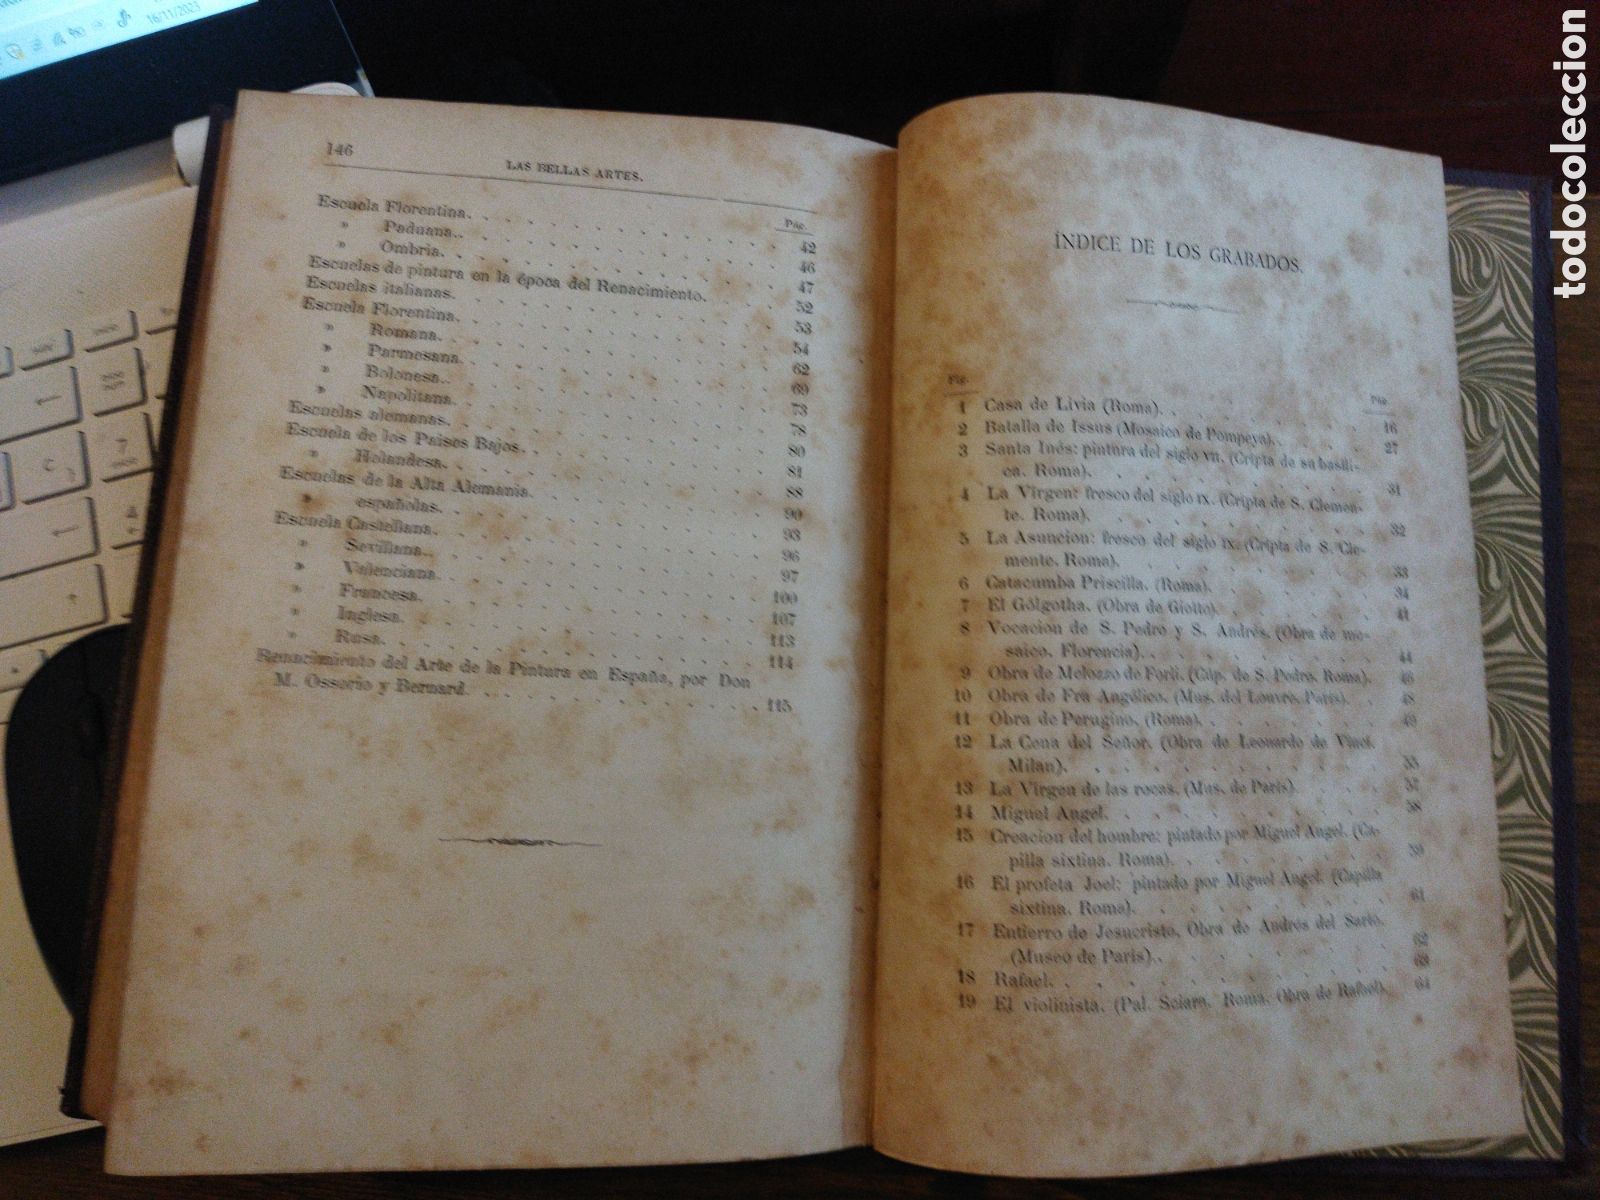 16/11/2023
todocoleccion
146
LAS BELLAS ARTES.
Pág.
Escuela Florentina. 42
» Paduana. 46
» Ombria. 47
Escuelas de pintura en la época del Renacimiento. 52
Escuelas italianas. 53
Escuela Florentina. 54
» Romana. 62
» Parmesana. 69
» Bolonesa. 73
» Napolitana. 78
Escuelas alemanas. 80
Escuela de los Paises Bajos. 81
» Holandesa. 88
Escuelas de la Alta Alemania. 90
» españolas. 93
Escuela Castellana. 96
» Sevillana. 97
» Valenciana. 100
» Francesa. 107
» Inglesa. 113
» Rusa. 114
Renacimiento del Arte de la Pintura en España, por Don
M. Ossorio y Bernard. 115
ÍNDICE DE LOS GRABADOS.
Fig. Pág.
1 Casa de Livia (Roma). 16
2 Batalla de Issus (Mosaico de Pompeya). 27
3 Santa Inés: pintura del siglo VII. (Cripta de su basíli-
ca. Roma). 31
4 La Vírgen: fresco del siglo IX. (Cripta de S. Clemen-
te. Roma). 32
5 La Asuncion: fresco del siglo IX. (Cripta de S. Cle-
mente. Roma). 33
6 Catacumba Priscilla. (Roma). 34
7 El Gólgotha. (Obra de Giotto). 41
8 Vocacion de S. Pedro y S. Andrés. (Obra de mo-
saico. Florencia). 44
9 Obra de Melozzo de Forli. (Cúp. de S. Pedro. Roma). 46
10 Obra de Fra Angélico. (Mus. del Louvre. París). 48
11 Obra de Perugino. (Roma). 49
12 La Cena del Señor. (Obra de Leonardo de Vinci.
Milan). 55
13 La Vírgen de las rocas. (Mus. de París). 57
14 Miguel Angel. 58
15 Creacion del hombre: pintado por Miguel Angel. (Ca-
pilla sixtina. Roma). 59
16 El profeta Joel: pintado por Miguel Angel. (Capilla
sixtina. Roma). 61
17 Entierro de Jesucristo. Obra de Andrés del Sarto.
(Museo de París). 62
18 Rafael. 63
19 El violinista. (Pal. Sciara. Roma. Obra de Rafael). 64